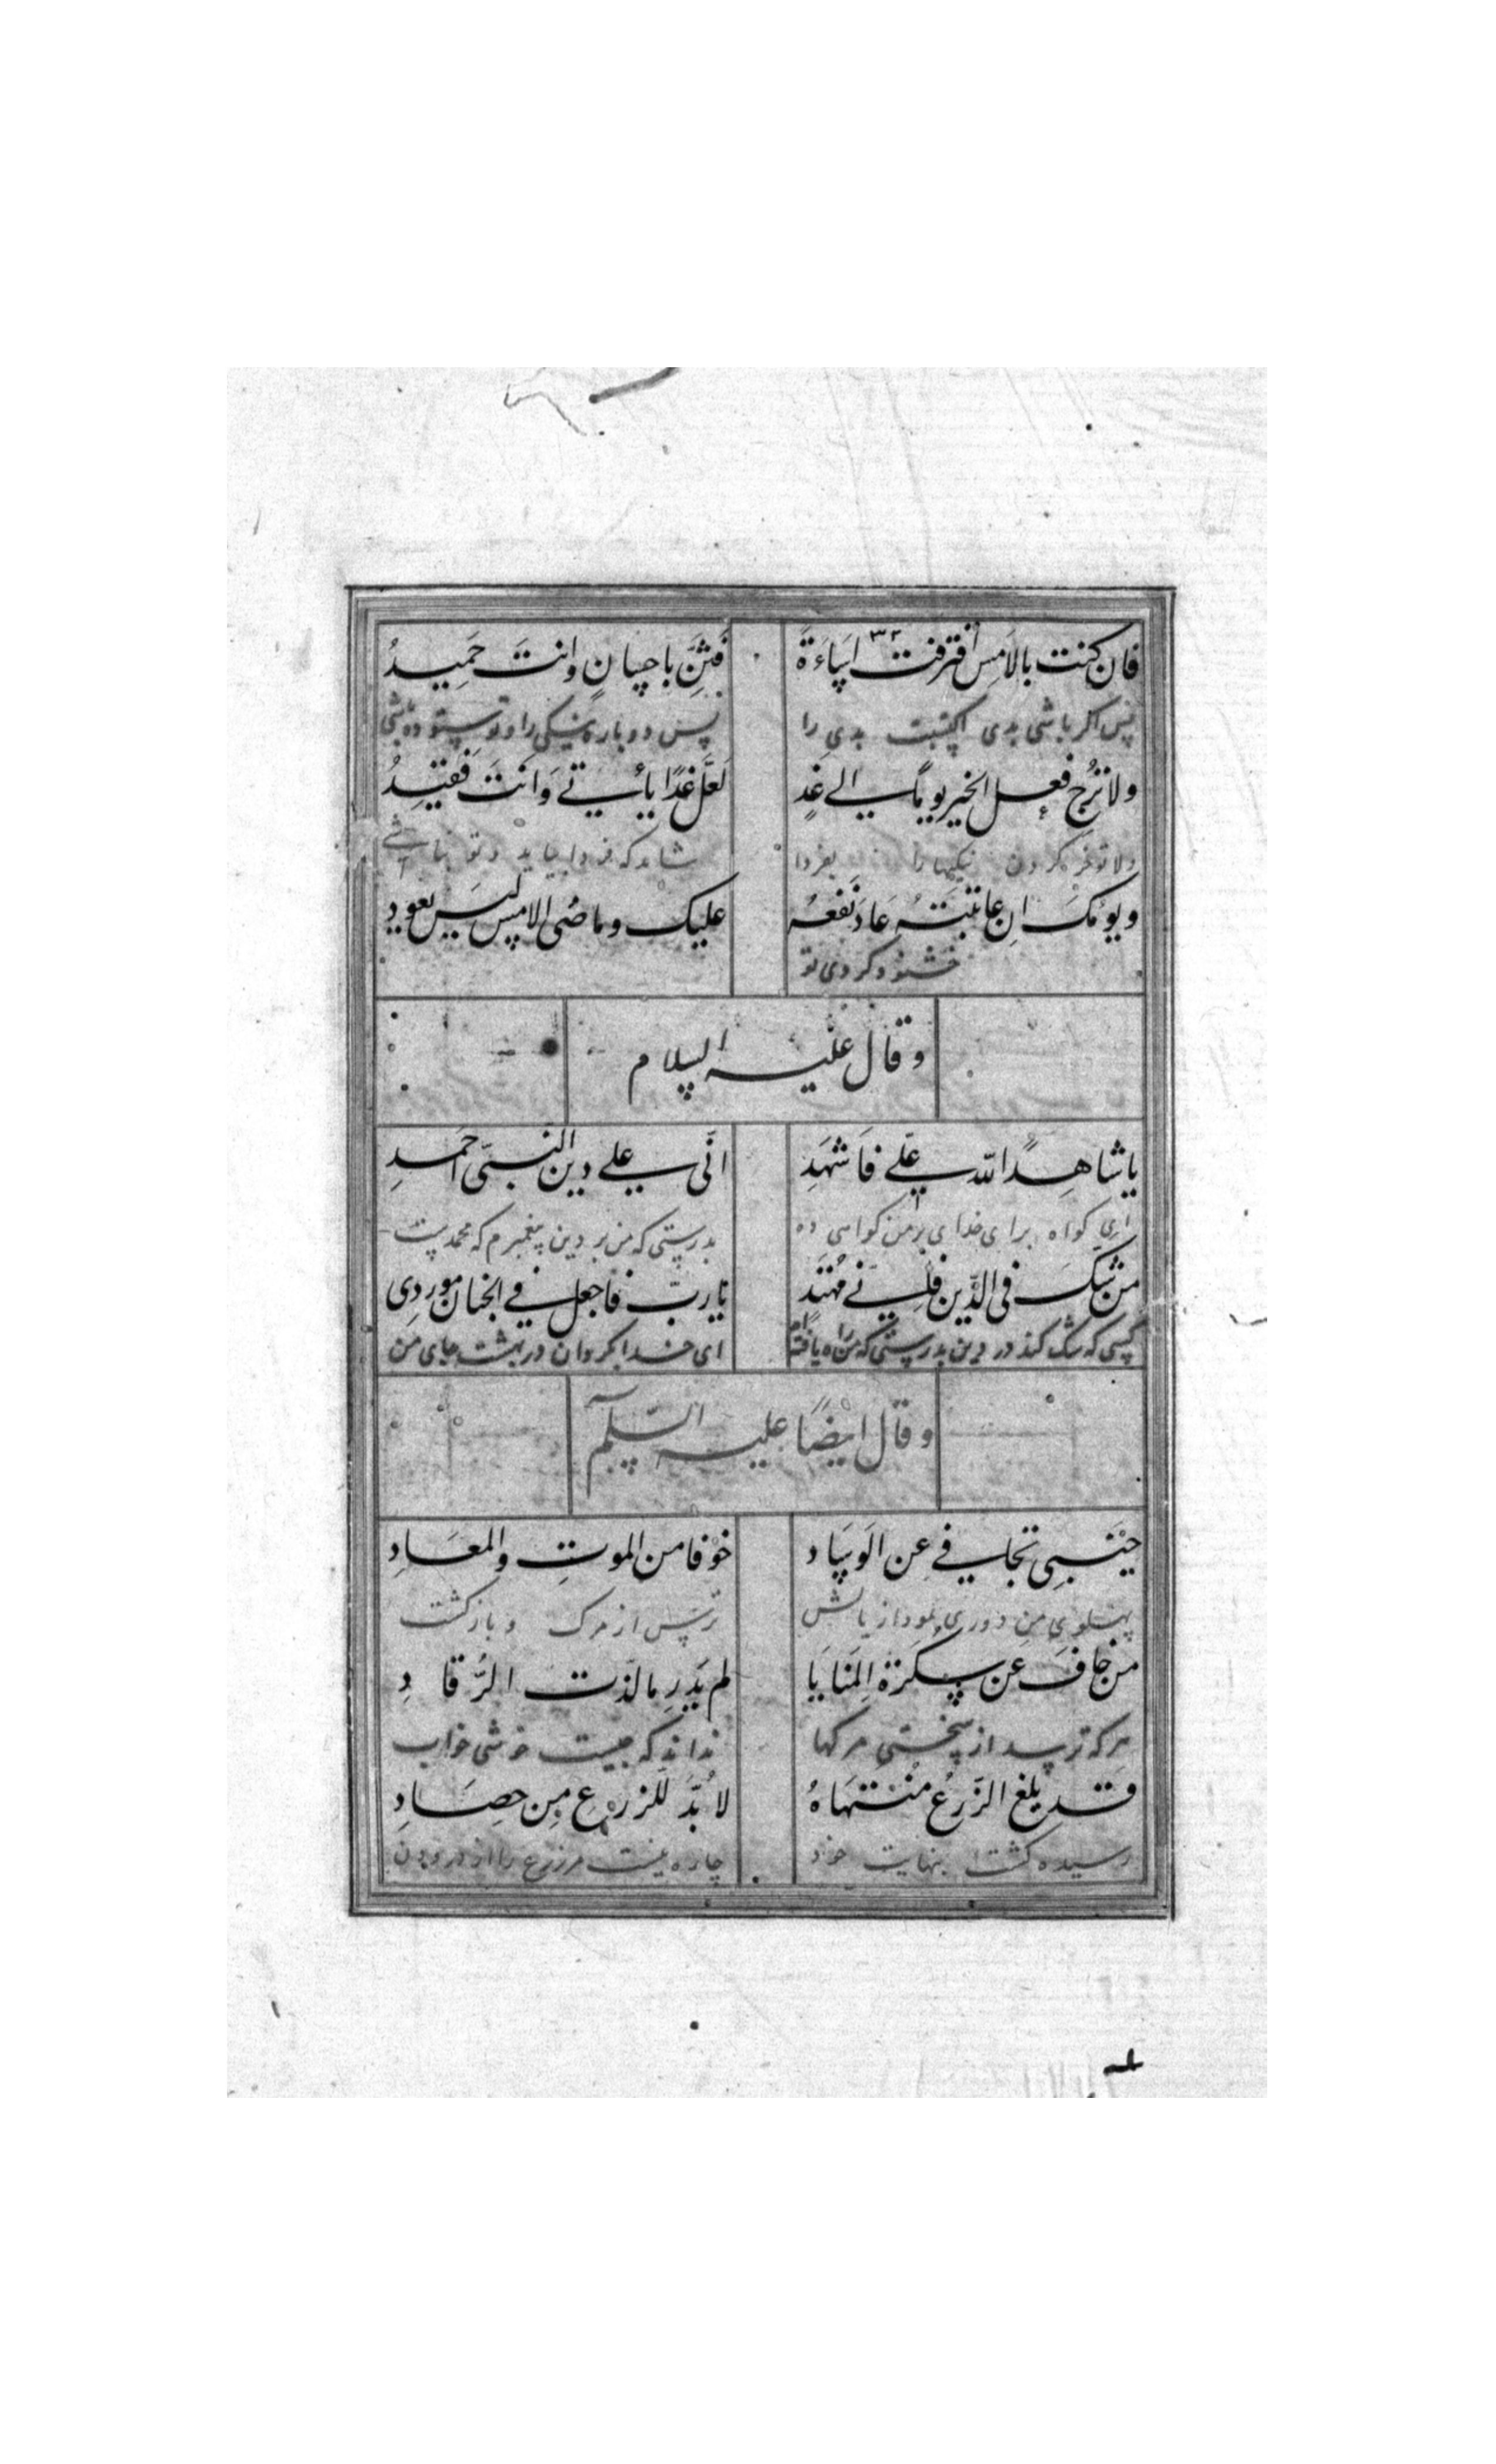 فان كنت بالاَمِس اقترفت اسَاءَةً
فَثَنِّ باحسانٍ وانتَ حَمِيدُ
پس اکر باشی بدی اکتسبت بدیِ را
پس دوباره نیکی را و تو ستوده باشی
ولا تُرْجِ فعل الخير يومًا الى غدٍ
لعَلَّ غدًا يأتي وَانتَ فَقيدُ
شاید که فردا بیاید و تو نباشی
نیکیها را بفردا
ويومكَ ان عاتبتَهُ عَادَ نَفعُهُ
عليك وماضى الامس ليسَ يعود
خشنود کردی تو
وقال عليه السلام
يا شاهِدًا لله عَلَي فَاشهَدِ
انّى على دين النبىّ احمدِ
ای کواه برای خدای بر من کواهی ده
بدرستی که من بر دین پیغمبرم که محمدست
من شكَّ فى الدّين فانّي مُهتَد
يا ربّ فاجعل في الجنان موردِى
کسی که شک کند در دین بدرستی که من راه یافته ام
ای خدا بکردان در بهشت جای من
وقال ايضًا عليه السّلم
جَنْبِى تجافي عن الوِسَاد
خوْفا من الموتِ والمعَادِ
پهلوی من دوری نمود از بالش
ترس از مرک و بازکشت
من خافَ عن سكرة المَنايَا
لم يَدرِ ما لذّت الرُّقادِ
هر که ترسد از سختی مرکها
نداند که چیست خوشی خواب
قد بلغ الزَّرعُ مُنتَهَاهُ
لا بُدَّ للزرعِ مِن حصَادِ
رسیده کشت بنهایت خود
چاره نیست مر زرع را از درودن